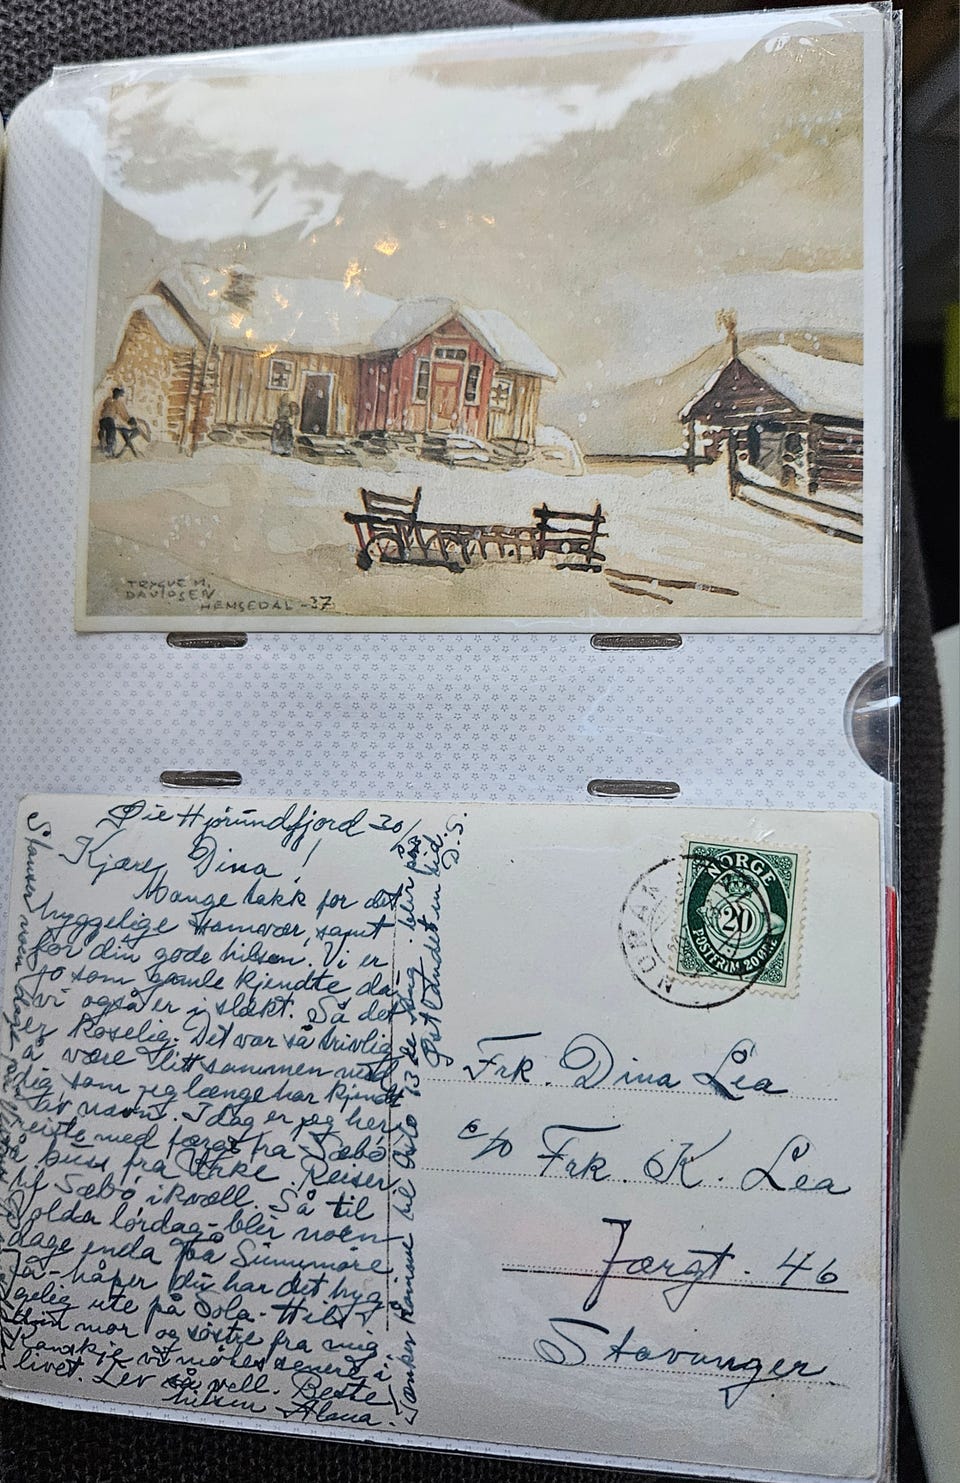 TRYGVE M.
DAVIDSEN
HEMSEDAL -37
Øie Hjørundfjord 30/
Kjære Dina!
Mange takk for det
hyggelige samvær, samt
for din gode hilsen. Vi er
jo som gamle kjendte da
vi også er i slekt. Så det
er koselig. Det var så trivlig
å være litt sammen med
dig som jeg længe har kjendt
av navn. Idag er jeg her
reiste med færge fra Sæbø
å buss fra Urke. Reiser
til Sæbø ikvæll. Så til
Volda lørdag - blir noen
dage enda på Sunnmøre
Ja - håper du har det hyg-
gelig ute på Sola. Hils
din mor og søstre fra mig
Kanskje vi møtes senere i
livet. Lev så vell. Beste
hilsen Alana.
Stanser noen dage på
Tænker komme til Oslo 13 de Aug. blir på
Østlandet en tid.
D.S.
NORGE
20
POSTFRIM. 20 ØRE
NORANG
Frk. Dina Lea
c/o Frk. K. Lea
Jærgt. 46
Stavanger